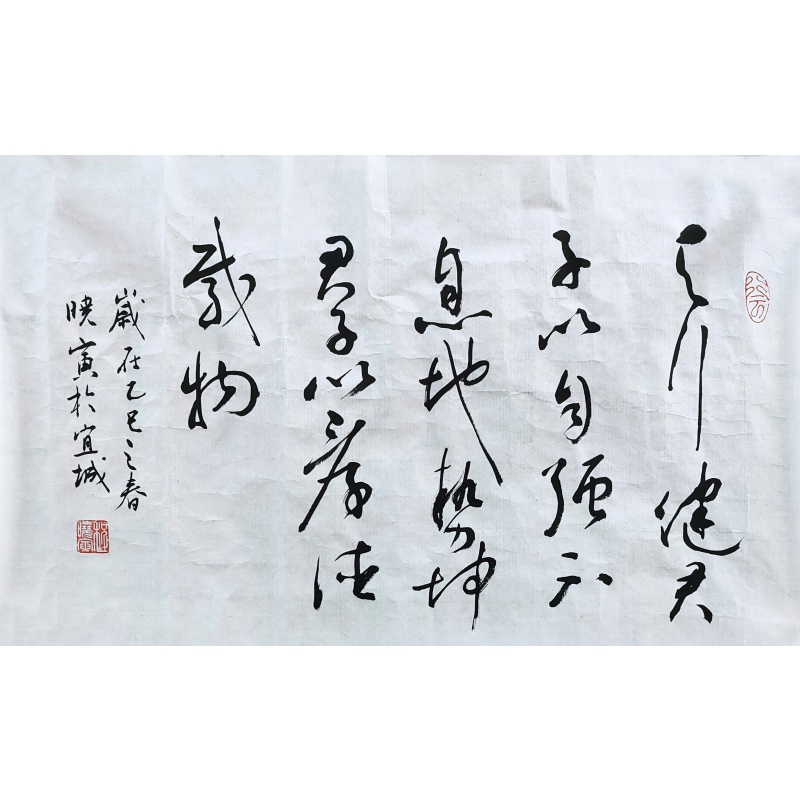 天行健君
子以自强不
息地势坤
君子以厚德
载物
岁在乙巳之春
晓寅于宜城